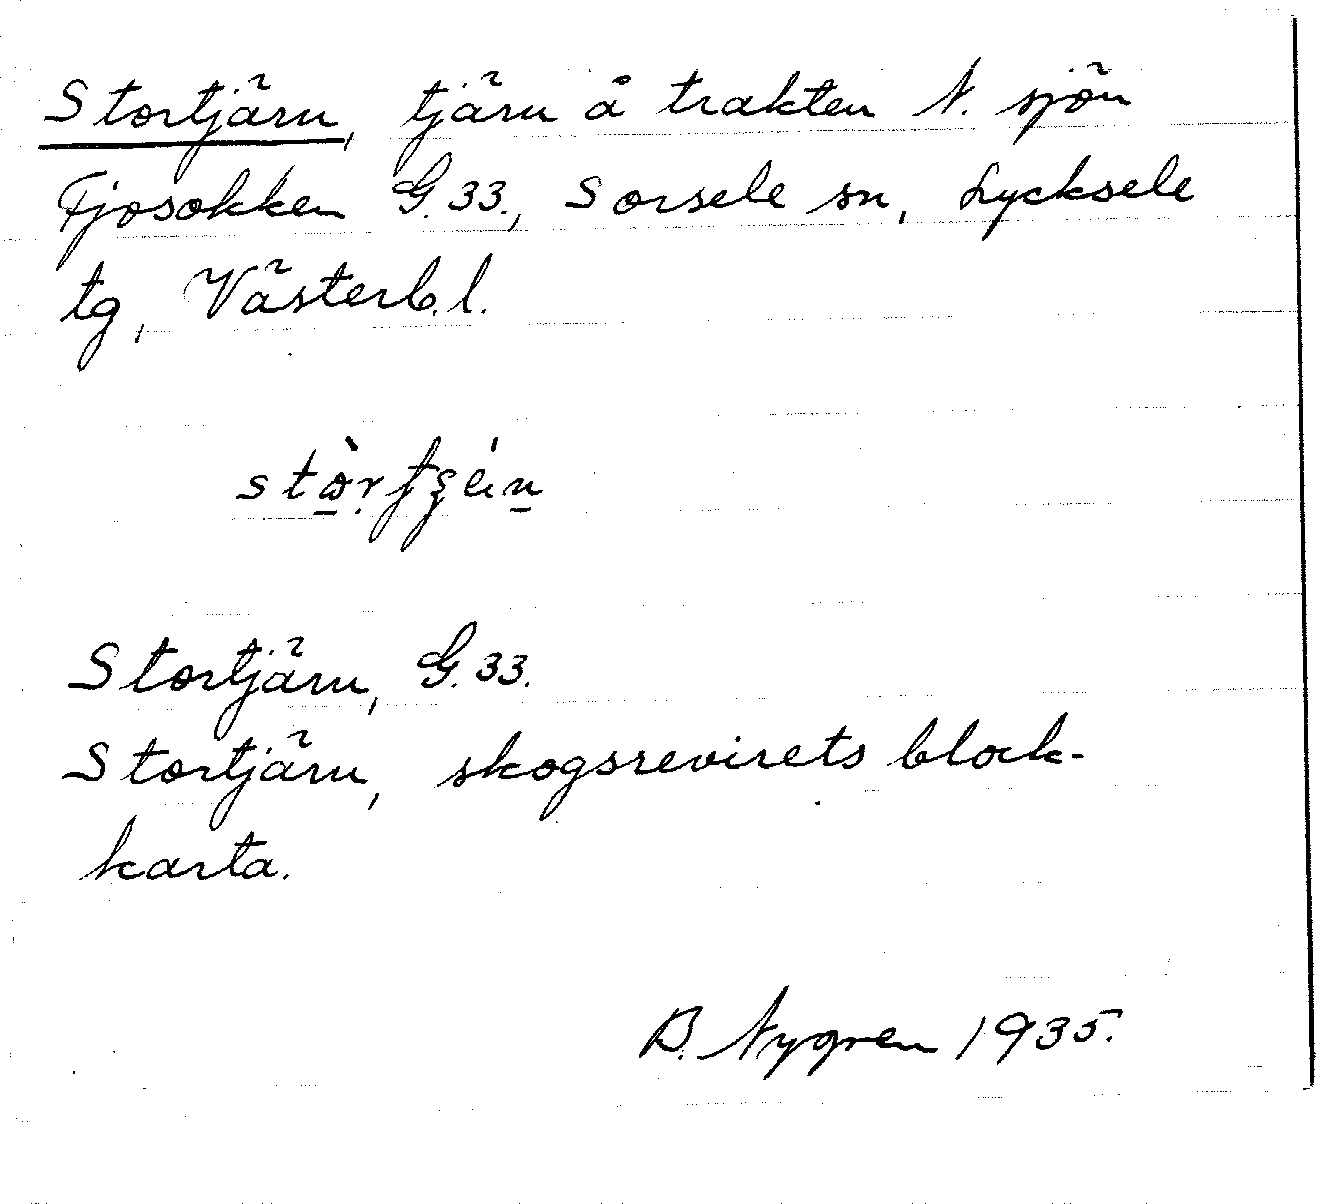 Stortjärn, tjärn å trakten N. sjön
Fjosokken G.33., Sorsele sn, Lycksele
tg, Västerb.l.
Stortjärn, G.33.
Stortjärn, skogsrevirets block-
karta.
B. Nygren 1935.